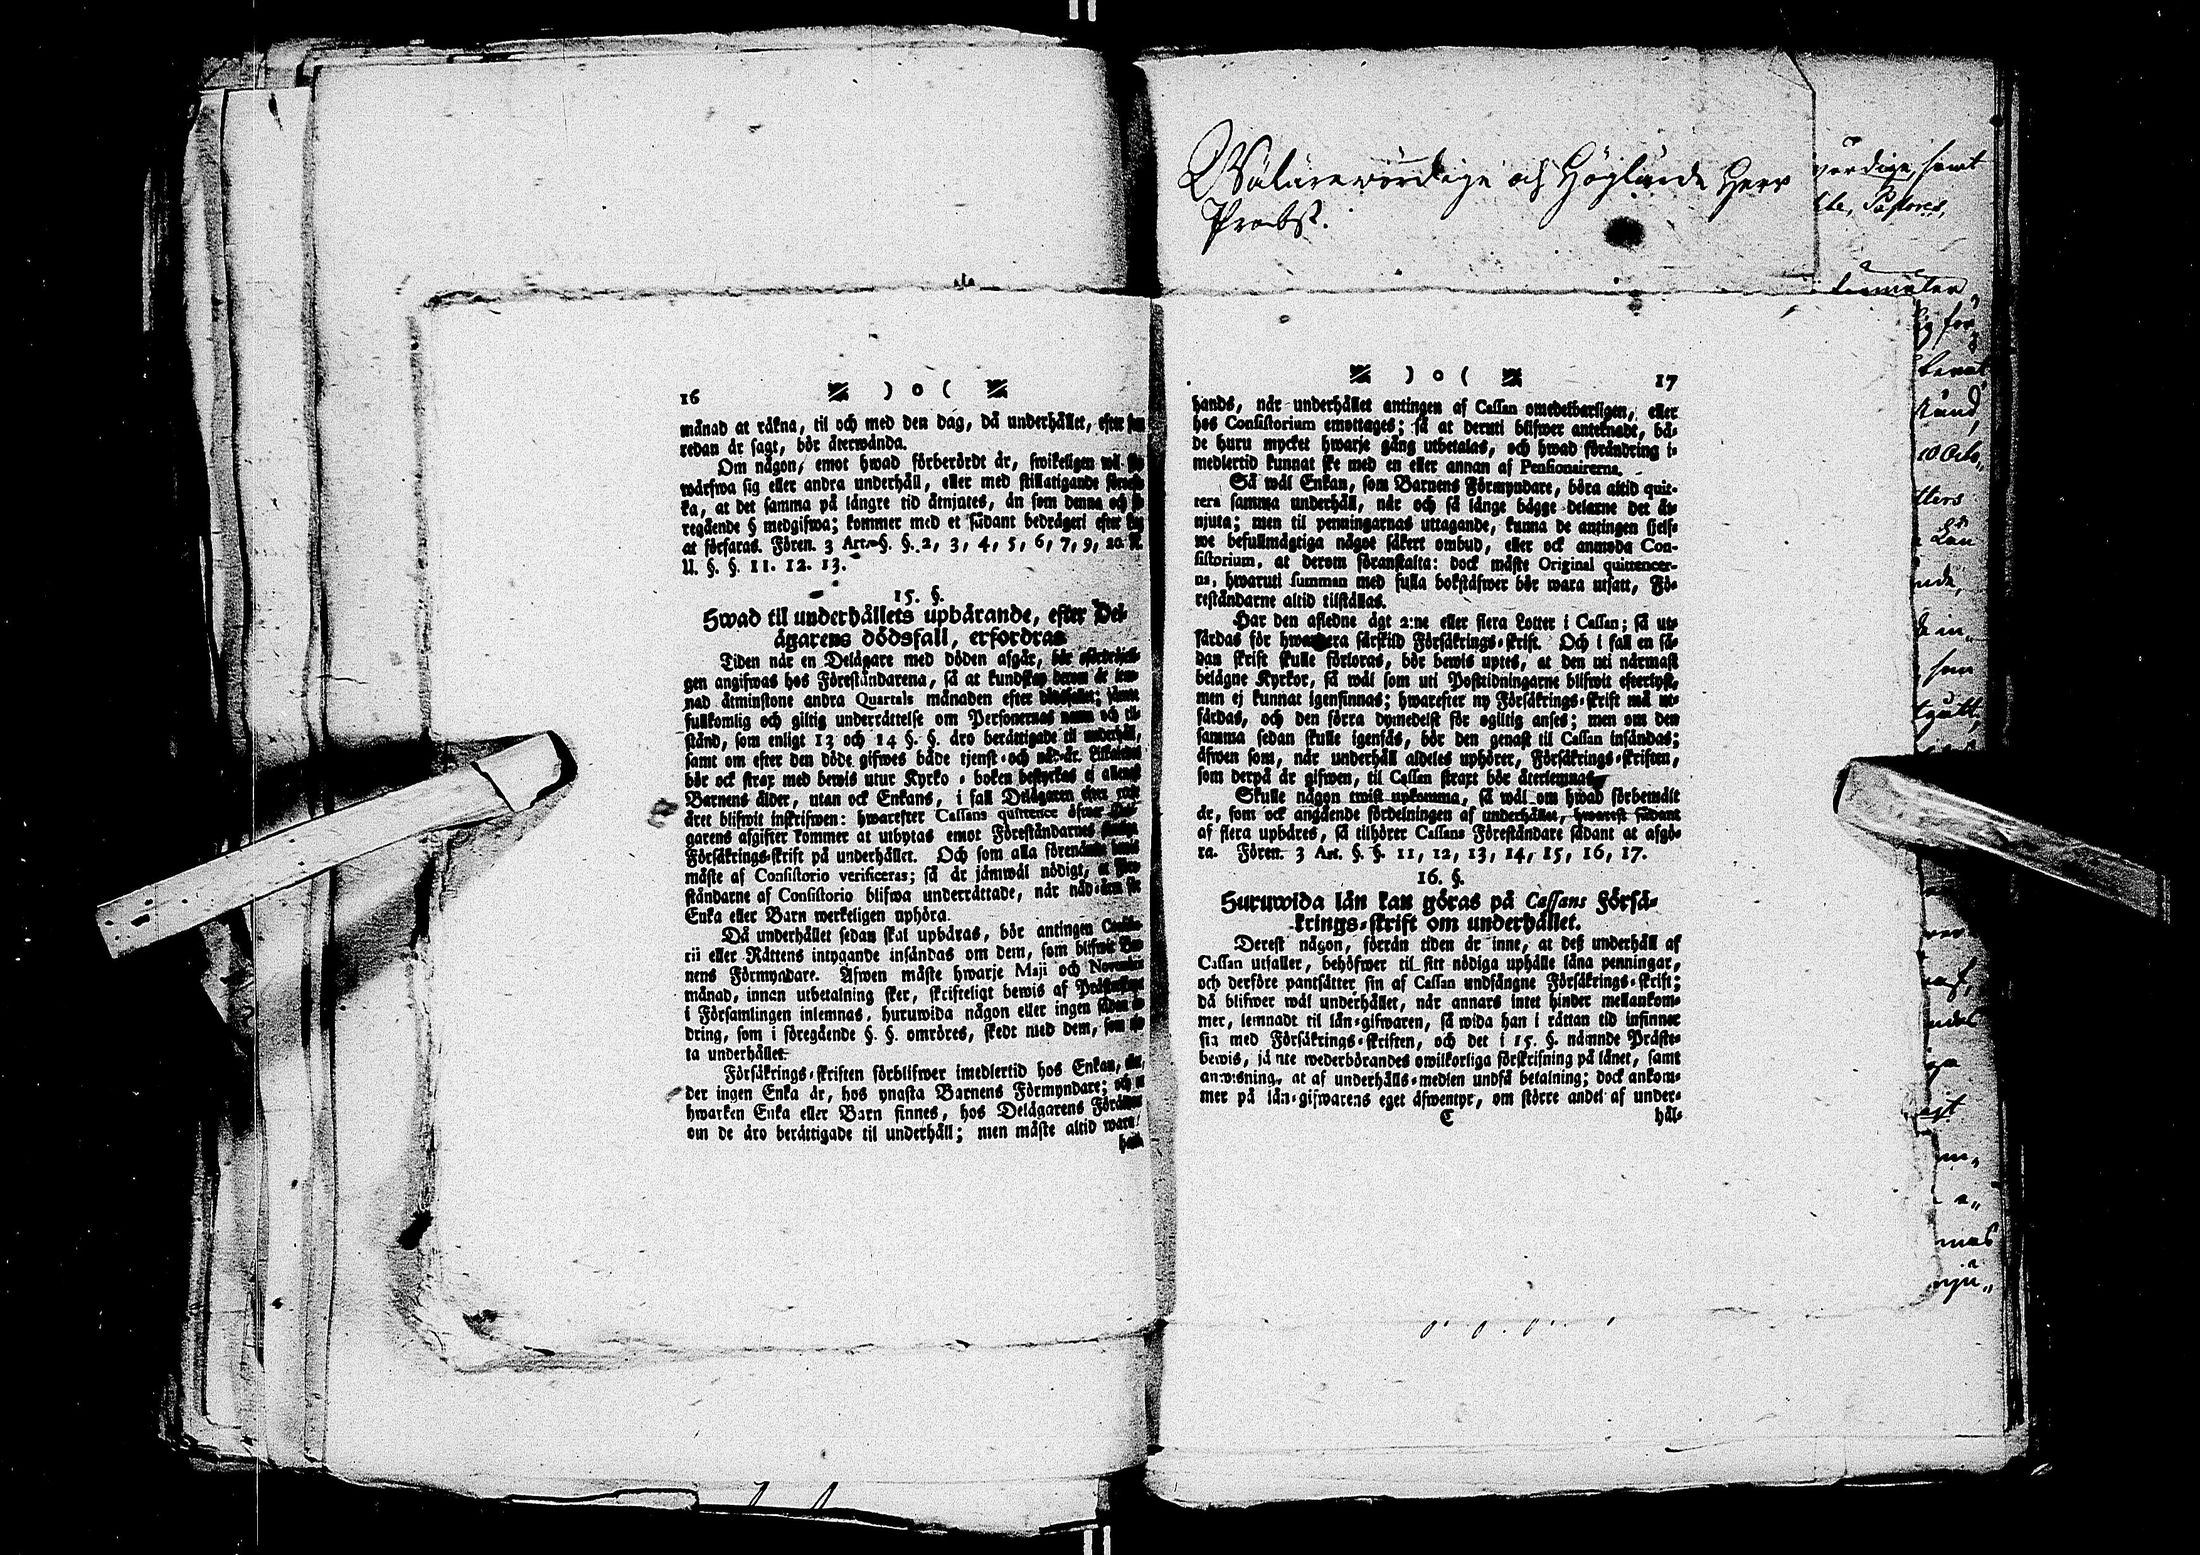 16 ) o (
månad at råkna, til och med den dag, då underhållet, efter som
redan år sagt, bör återwånda.
Om någon, emot hwad förberördt år, swikeligen wil
wårfwa sig eller andra underhåll, eller med stillatigande
ka, at det samma på långre tid åtnjutes, ån som denna och
regående § medgifwa; kommer med et sådant bedrågeri efter lag
at förfaras. Fören. 3 Art. §. §. 2, 3, 4, 5, 6, 7, 9, 10. R.
U. §. §. 11. 12. 13.
15. §.
Hwad til underhållets upbårande, efter Del-
ågarens dödsfall, erfordras
Tiden når en Delågare med döden afgår, bör
gen angifwas hos Föreståndarena, så at kundskap derom år
nad åtminstone andra Quartals månaden efter dödsfallet;
fullkomlig och giltig underråttelse om Personernas namn och til-
stånd, som enligt 13 och 14 §. §. åro beråttigade til underhåll,
samt om efter den döde gifwes både tjenst- och nåd-år.
bör ock strax med bewis utur Kyrko-boken bestyrkas ej allenast
Barnens ålder, utan ock Enkans, i fall Delågaren efter
året blifwit inskrifwen: hwarefter Cassans quittence öfwer Del-
garens afgifter kommer at utbytas emot Föreståndarnes
Försåkrings-skrift på underhållet. Och som alla förenåmde
måste af Consistorio verificeras; så år jåmwål nödigt, at
ståndarne af Consistorio blifwa underråttade, når nåd-åren för
Enka eller Barn werkeligen uphöra.
Då underhållet sedan skal upbåras, bör antingen Consisto-
rii eller Råttens intygande insåndas om dem, som blifwit Bar-
nens Förmyndare. Åfwen måste hwarje Maji och Novembris
månad, innan utbetalning sker, skrifteligt bewis af Pråsterskapet
i Församlingen inlemnas, huruwida någon eller ingen sådan
dring, som i föregående §. §. omröres, skedt med dem, som
ta underhållet.
Försåkrings-skriften förblifwer imedlertid hos Enkan,
der ingen Enka år, hos yngsta Barnens Förmyndare; och
hwarken Enka eller Barn finnes, hos Delågarens Föråldrar
om de åro beråttigade til underhåll; men måste altid wara
) o ( 17
hands, når underhållet antingen af Cassan omedelbarligen, eller
hos Consistorium emottages; så at deruti blifwer antecknadt, bå-
de huru mycket hwarje gång utbetalas, och hwad förändring i-
medlertid kunnat ske med en eller annan af Pensionairerna.
Så wål Enkan, som Barnens Förmyndare, böra altid quit-
tera samma underhåll, når och så långe bågge delarne det åt-
njuta; men til penningarnas uttagande, kunna de antingen sjelf-
we befullmågtiga något såkert ombud, eller ock anmoda Con-
sistorium, at derom föranstalta: dock måste Original quittencer-
na, hwaruti summan med fulla bokståfwer bör wara utsatt, Fö-
reståndarne altid tilställas.
Har den afledne ågt 2:ne eller flera Lotter i Cassan; så ut-
fårdas för hwardera sårskild Försåkrings-skrift. Och i fall en så-
dan skrift skulle förloras, bör bewis uptes, at den uti nårmast
belågne Kyrkor, så wål som uti Posttidningarne blifwit efterlyst,
men ej kunnat igenfinnas; hwarefter ny Försåkrings-skrift må ut-
fårdas, och den förra dymedelst för ogiltig anses; men om den
samma sedan skulle igenfås, bör den genast til Cassan insåndas;
åfwen som, når underhåll aldeles uphörer, Försåkrings-skriften,
som derpå år gifwen, til Cassan straxt bör återlemnas.
Skulle någon twist upkomma, så wål om hwad förbemålt
år, som ock angående fördelningen af underhållet, hwarest sådant
af flera upbåres, så tilhörer Cassans Föreståndare sådant at afgö-
ra. Fören. 3 Art. §. §. 11, 12, 13, 14, 15, 16, 17.
16. §.
Huruwida lån kan göras på Cassans Förså-
krings-skrift om underhållet.
Derest någon, förrån tiden år inne, at deß underhåll af
Cassan utfaller, behöfwer til sitt nödiga uphålle låna penningar,
och derföre pantsåtter sin af Cassan undfångne Försåkrings-skrift;
då blifwer wål underhållet, når annars intet hinder mellankom-
mer, lemnadt til lån-gifwaren, så wida han i råttan tid infinner
sig med Försåkrings-skriften, och det i 15. §. nåmnde Pråste-
bewis, jåmte wederbörandes owilkorliga förskrifning på lånet, samt
anwisning, at af underhålls-medlen undfå betalning; dock ankom-
mer på lån-gifwarens eget åfwentyr, om större andel af under-
C hål-
Wälärewördige och Höglärde Herr
Probst.
wördige, samt
Pastores,